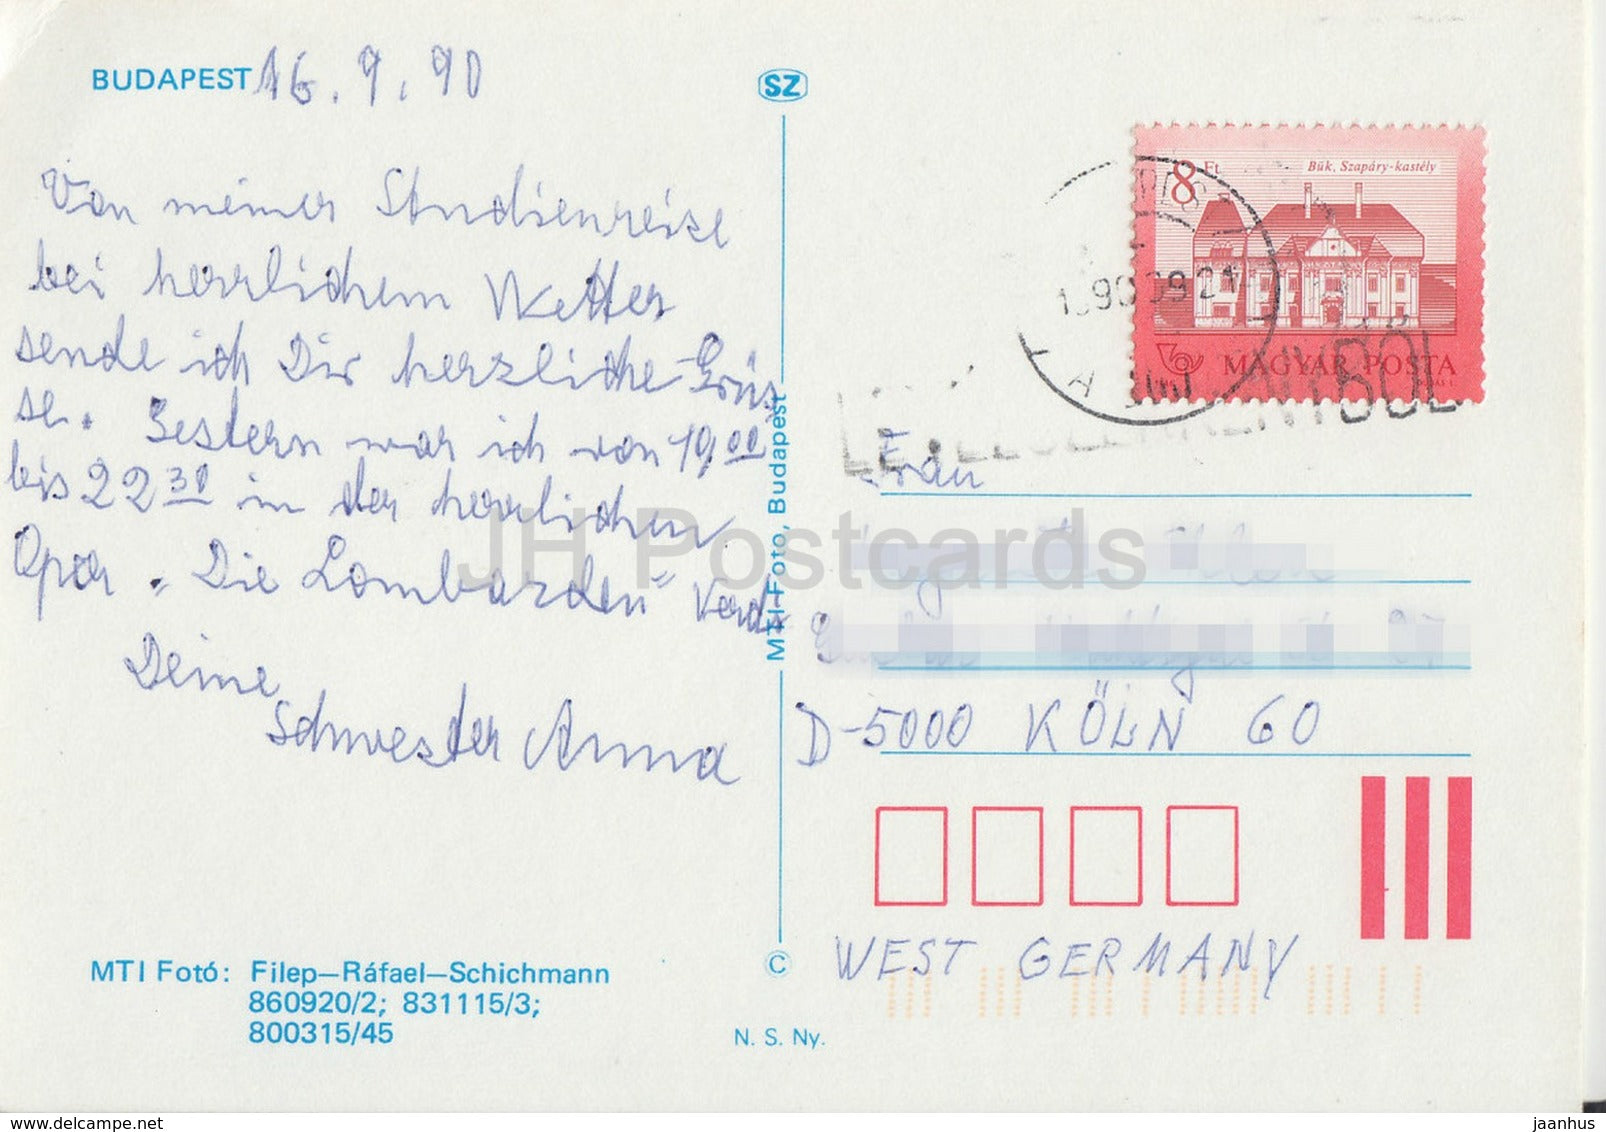 BUDAPEST 16. 9. 90
SZ
Von meiner Studienreise
bei herrlichem Wetter
sende ich Dir herzliche Grüs
se. Gestern war ich von 19,00
bis 22 30 in der herrlichen
Oper „Die Lombarden" Verdi
Deine
Schwester Anna
MTI Fotó: Filep—Ráfael—Schichmann
860920/2; 831115/3;
800315/45
MTI-Foto, Budapest
©
N. S. Ny.
8 Ft
Bük, Szapáry-kastély
MAGYAR POSTA
90 09 21
Frau
D-5000 KÖLN 60
WEST GERMANY
JH Postcards
www.delcampe.net
jaanhus